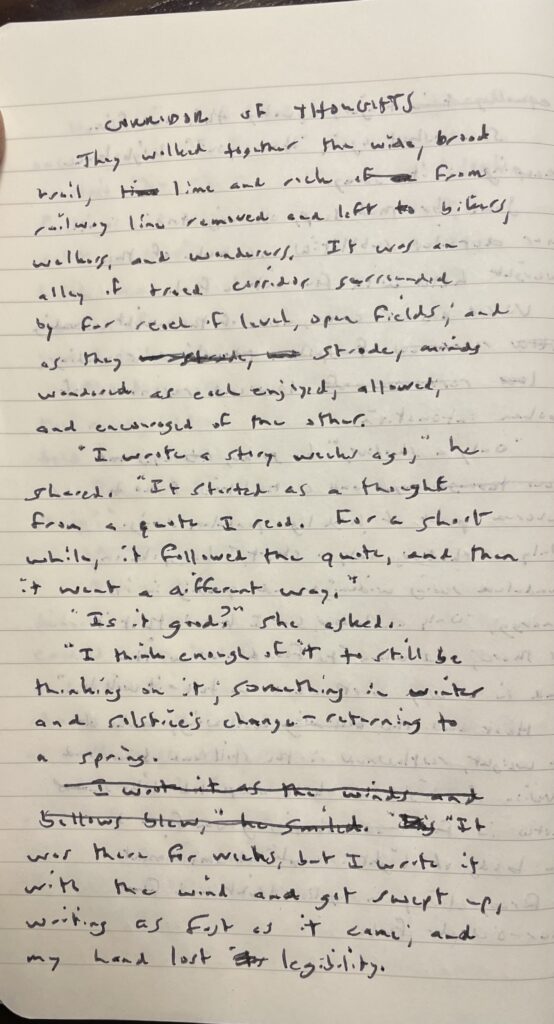 CORRIDOR OF THOUGHTS
They walked together the wide, broad
trail, line and rock from
railway line removed and left to bikers,
walkers, and wanderers. It was an
alley of treed corridor surrounded
by far reach of level, open fields; and
as they strode, minds
wandered as each enjoyed, allowed,
and encouraged of the other.
"I wrote a story weeks ago," he
shared. "It started as a thought
from a quote I read. For a short
while, it followed the quote, and then
it went a different way."
"Is it good?" she asked.
"I think enough of it to still be
thinking on it; something in winter
and solstice's change - returning to
a spring.
I wrote it as the winds and
bellows blew," he smiled. "It
was there for weeks, but I wrote it
with the wind and got swept up,
writing as fast as it came; and
my hand lost legibility.